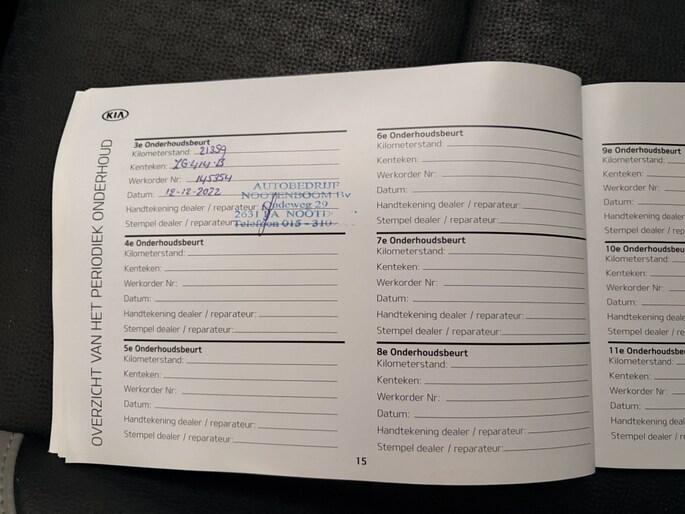 KIA
OVERZICHT VAN HET PERIODIEK ONDERHOUD
3e Onderhoudsbeurt
Kilometerstand: 21359
Kenteken: ZG-414-B
Werkorder Nr: 145354
Datum: 12-12-2022
Handtekening dealer / reparateur:
Stempel dealer / reparateur:
AUTOBEDRIJF
NOOTENBOOM BV
Oudeweg 29
2631 NOOTD
Telefoon 015 - 310
4e Onderhoudsbeurt
Kilometerstand:
Kenteken:
Werkorder Nr:
Datum:
Handtekening dealer / reparateur:
Stempel dealer / reparateur:
5e Onderhoudsbeurt
Kilometerstand:
Kenteken:
Werkorder Nr:
Datum:
Handtekening dealer / reparateur:
Stempel dealer / reparateur:
6e Onderhoudsbeurt
Kilometerstand:
Kenteken:
Werkorder Nr:
Datum:
Handtekening dealer / reparateur:
Stempel dealer / reparateur:
7e Onderhoudsbeurt
Kilometerstand:
Kenteken:
Werkorder Nr:
Datum:
Handtekening dealer / reparateur:
Stempel dealer / reparateur:
8e Onderhoudsbeurt
Kilometerstand:
Kenteken:
Werkorder Nr:
Datum:
Handtekening dealer / reparateur:
Stempel dealer / reparateur:
15
9e Onderhoudsbeu
Kilometerstand:
Kenteken:
Werkorder Nr:
Datum:
Handtekening dea
Stempel dealer / r
10e Onderhoudsbe
Kilometerstand:
Kenteken:
Werkorder Nr:
Datum:
Handtekening deal
Stempel dealer / re
11e Onderhoudsbe
Kilometerstand:
Kenteken:
Werkorder Nr:
Datum:
Handtekening deal
Stempel dealer / re